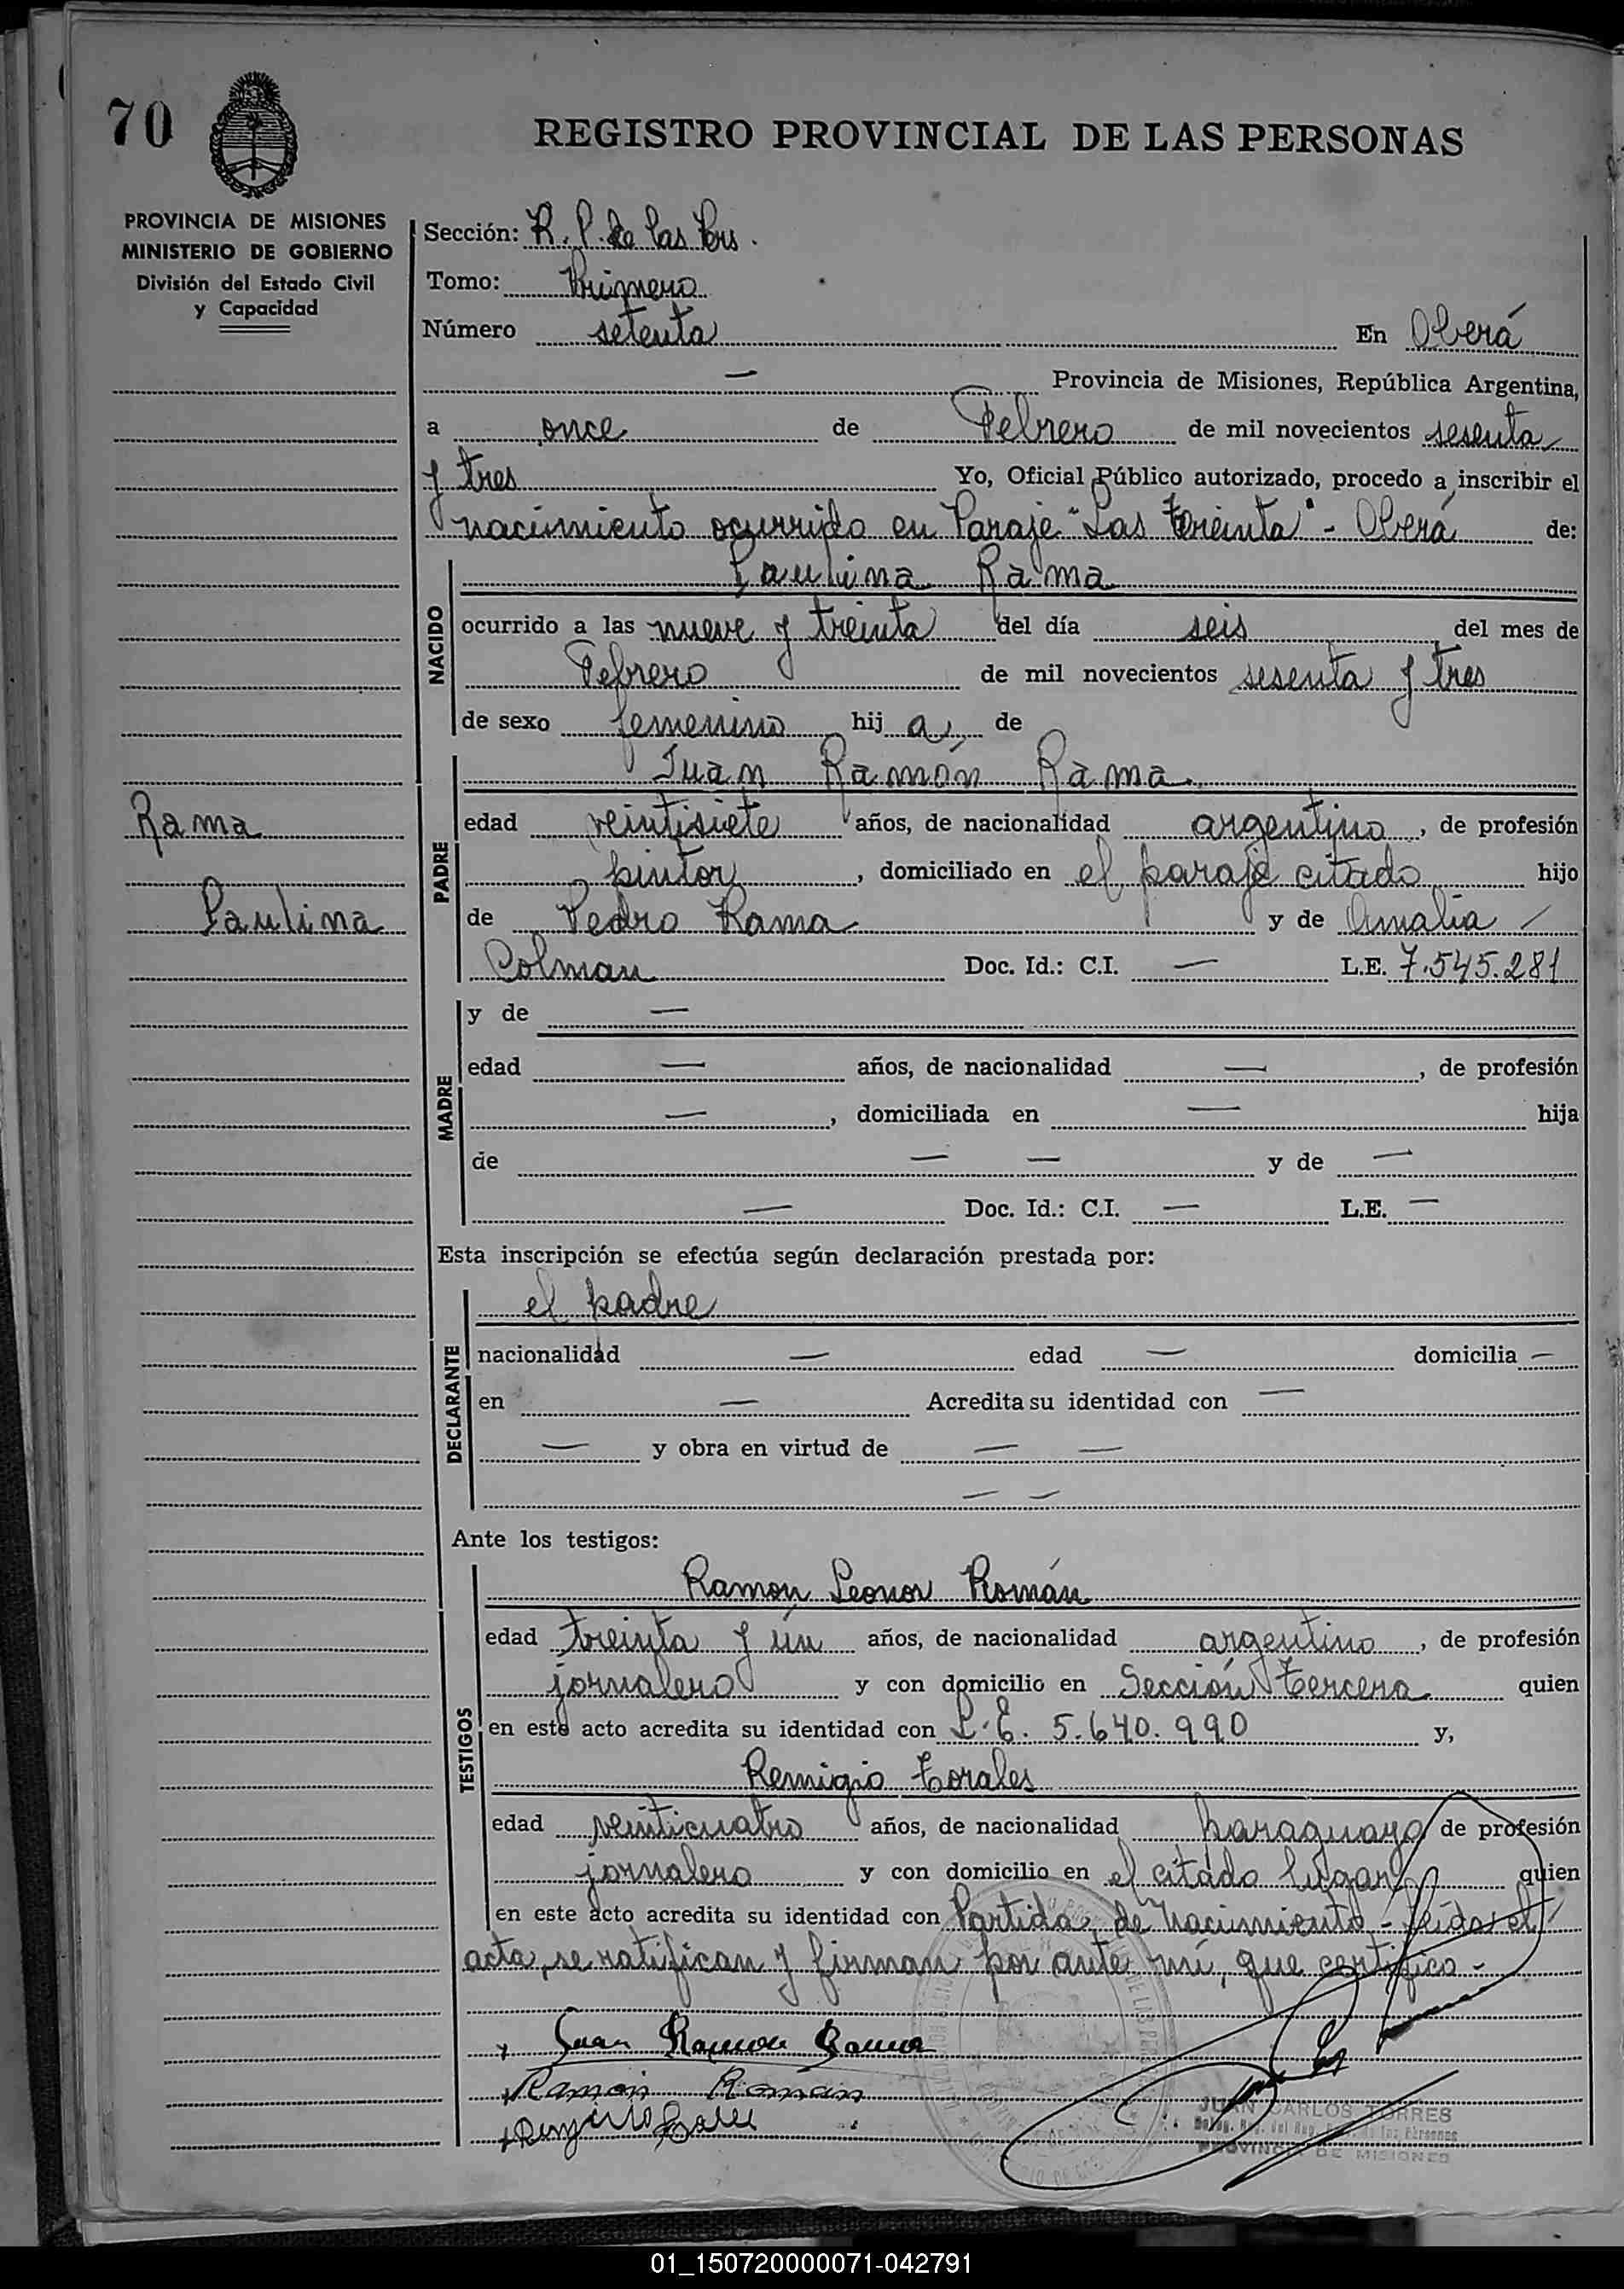 70
REGISTRO PROVINCIAL DE LAS PERSONAS
PROVINCIA DE MISIONES
MINISTERIO DE GOBIERNO
División del Estado Civil
y Capacidad
Sección: R. P. de las Pers.
Tomo: Primero
Número setenta En Oberá
— Provincia de Misiones, República Argentina,
a once de Febrero de mil novecientos sesenta
y tres Yo, Oficial Público autorizado, procedo a inscribir el
nacimiento ocurrido en Paraje "Las Treinta" - Oberá de:
NACIDO
Paulina Rama
ocurrido a las nueve y treinta del día seis del mes de
Febrero de mil novecientos sesenta y tres
de sexo femenino hij a, de
PADRE
Juan Ramón Rama
Rama
edad veintisiete años, de nacionalidad argentino, de profesión
pintor, domiciliado en el paraje citado hijo
Paulina
de Pedro Rama y de Amalia
Colman Doc. Id.: C.I. — L.E. 7.545.281
MADRE
y de —
edad — años, de nacionalidad —, de profesión
—, domiciliada en — hija
de — — y de —
— Doc. Id.: C.I. — L.E. —
Esta inscripción se efectúa según declaración prestada por:
DECLARANTE
el padre
nacionalidad — edad — domicilia —
en — Acredita su identidad con —
— y obra en virtud de — —
— —
Ante los testigos:
TESTIGOS
Ramon Leonor Román
edad treinta y ún años, de nacionalidad argentino, de profesión
jornalero y con domicilio en Sección Tercera quien
en este acto acredita su identidad con L.E. 5.640.990 y,
Remigio Torales
edad veinticuatro años, de nacionalidad paraguayo de profesión
jornalero y con domicilio en el citado lugar quien
en este acto acredita su identidad con Partida de Nacimiento - Leída el
acta, se ratifican y firman por ante mí, que certifico -
Juan Ramon Rama
Ramon Román
JUAN CARLOS TORRES
PROVINCIA DE MISIONES
01_150720000071-042791